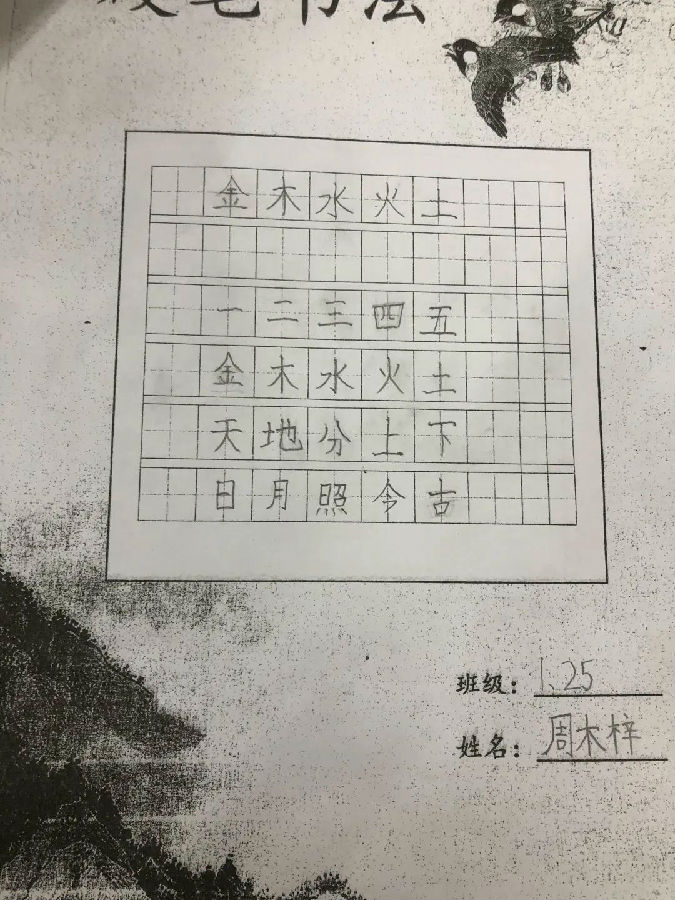 硬笔书法
金木水火土
一二三四五
金木水火土
天地分上下
日月照今古
班级：1、25
姓名：周木梓